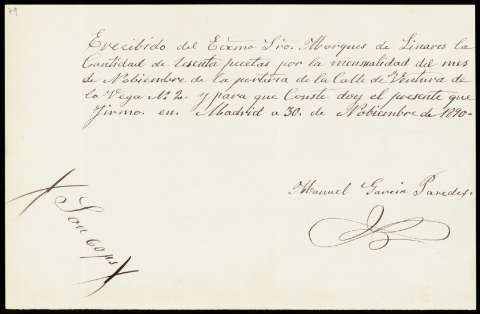 79
E recibido del Ecsmo Sro. Marques de Linares la
Cantidad de sesenta pecetas por la mensualidad del mes
de Nobiembre de la porteria de la Calle de Ventura de
la Vega No 2. y para que Conste doy el presente que
firmo en Madrid a 30 de Nobiembre de 1890.
Manuel Garcia Paredes.
Son 60 ps